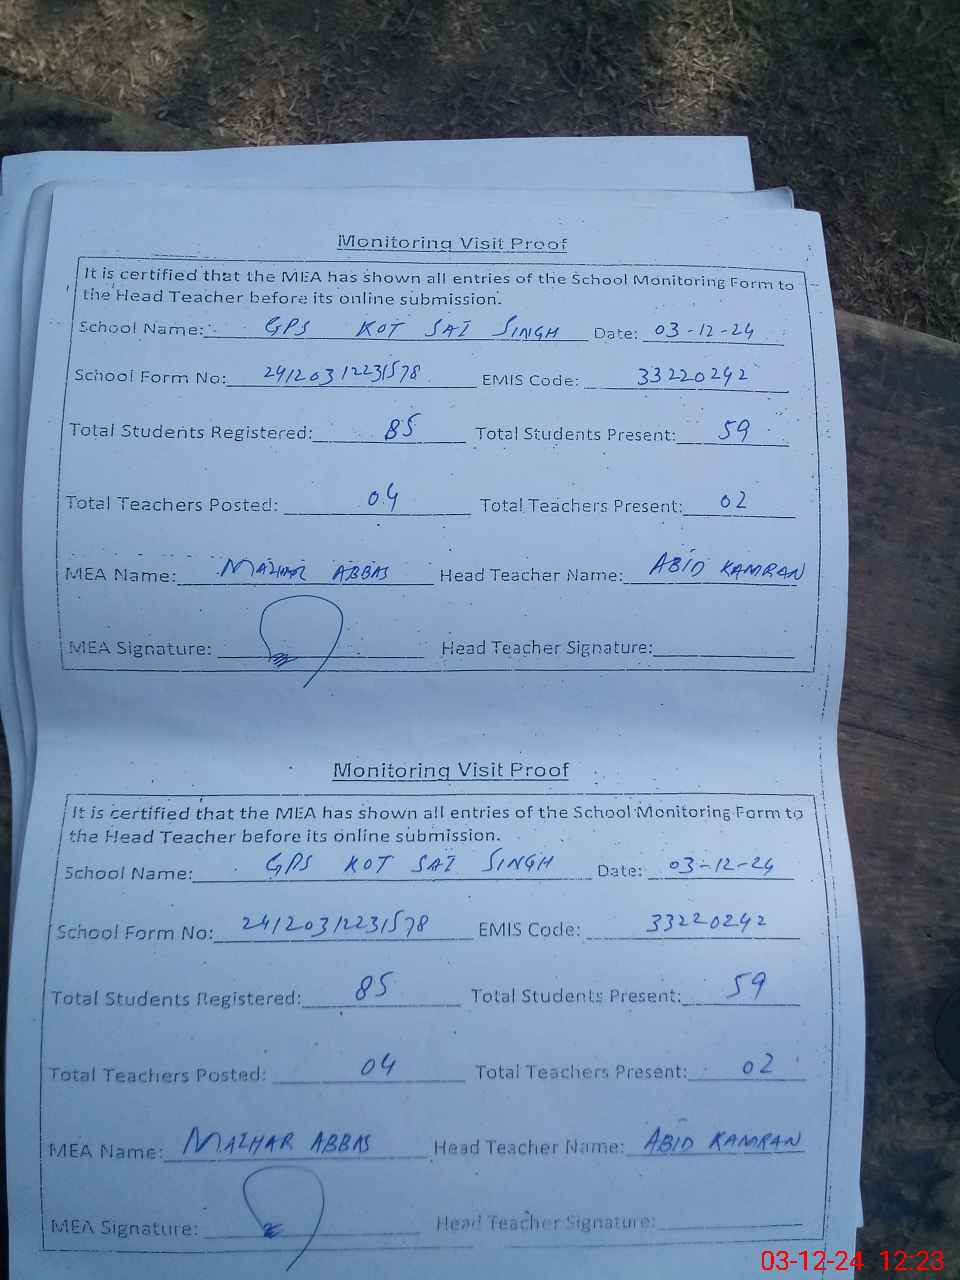 Monitoring Visit Proof
It is certified that the MEA has shown all entries of the School Monitoring Form to
the Head Teacher before its online submission.
School Name: GPS KOT SAI SINGH Date: 03-12-24
School Form No: 24120312231578 EMIS Code: 33220242
Total Students Registered: 85 Total Students Present: 59
Total Teachers Posted: 04 Total Teachers Present: 02
MEA Name: MAZHAR ABBAS Head Teacher Name: ABID KAMRAN
MEA Signature: Head Teacher Signature:
Monitoring Visit Proof
It is certified that the MEA has shown all entries of the School Monitoring Form to
the Head Teacher before its online submission.
School Name: GPS KOT SAI SINGH Date: 03-12-24
School Form No: 24120312231578 EMIS Code: 33220242
Total Students Registered: 85 Total Students Present: 59
Total Teachers Posted: 04 Total Teachers Present: 02
MEA Name: MAZHAR ABBAS Head Teacher Name: ABID KAMRAN
MEA Signature: Head Teacher Signature:
03-12-24 12:23